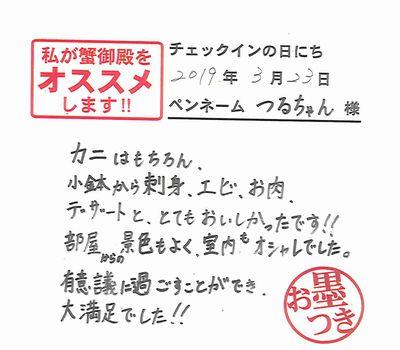 私が蟹御殿を
オススメ
します!!
チェックインの日にち
2019年 3月 23日
ペンネーム つるちゃん 様
カニはもちろん、
小鉢から刺身、エビ、お肉、
デザートと、とてもおいしかったです!!
部屋からの景色もよく、室内もオシャレでした。
有意議に過ごすことができ、
大満足でした!!
お墨つき